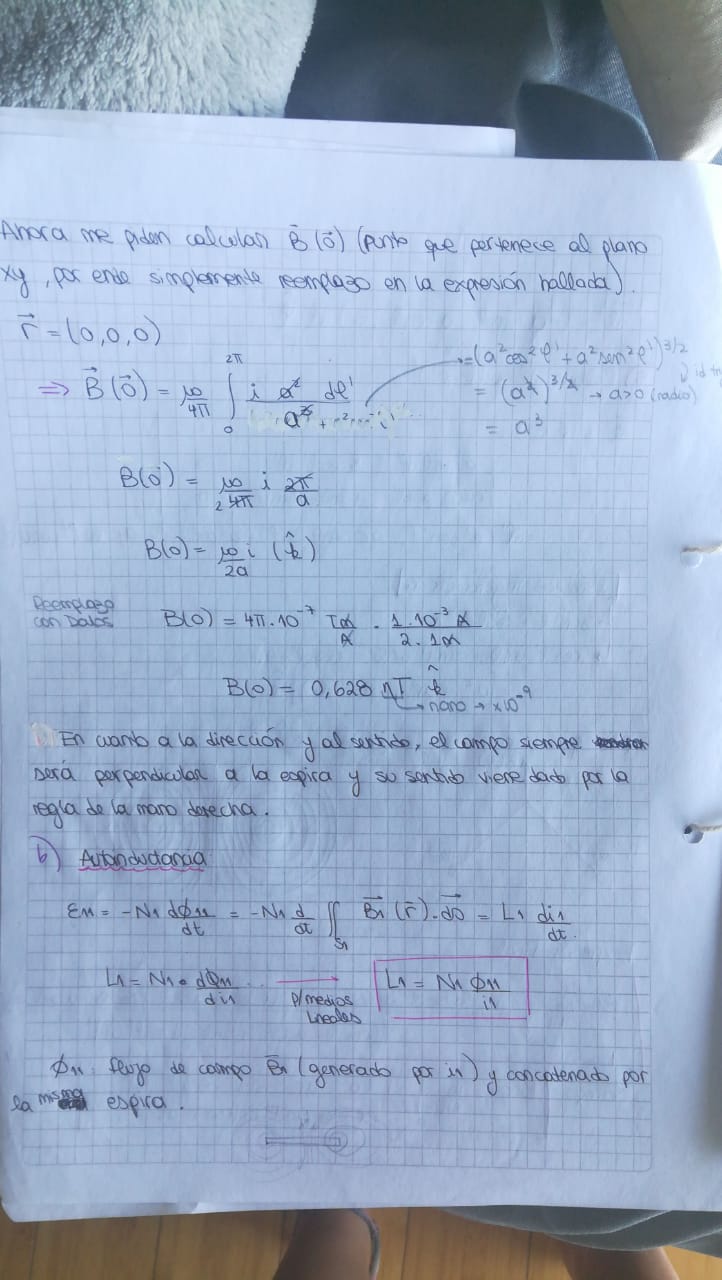 Ahora me piden calcular B⃗(0⃗) (punto que pertenece al plano
xy, por ende simplemente reemplazo en la expresión hallada).
r⃗ = (0,0,0)
⇒ B⃗(0⃗) = μ0/4π ∫₀^2π i a² dφ'/a³
= (a²cos²φ' + a²sen²φ')^3/2
= (a²)^3/2 → a>0 (radio)
= a³
B(0⃗) = μ0/4π i 2π/a
2
B(0) = μ0 i/2a (k̂)
Reemplazo
con Datos
B(0) = 4π.10⁻⁷ Tm/A . 1.10⁻³ A/2.1m
B(0) = 0,628 nT k̂
→ nano → x10⁻⁹
En cuanto a la dirección y al sentido, el campo siempre
será perpendicular a la espira y su sentido viene dado por la
regla de la mano derecha.
b) Autoinductancia
ε11 = -N1 dφ11/dt = -N1 d/dt ∬S1 B⃗1(r⃗).d⃗σ = L1 di1/dt.
L1 = N1 . dφ11/di1 → p/medios Lineales L1 = N1 φ11/i1
φ11: flujo de campo B⃗1 (generado por i1) y concatenado por
la misma espira.